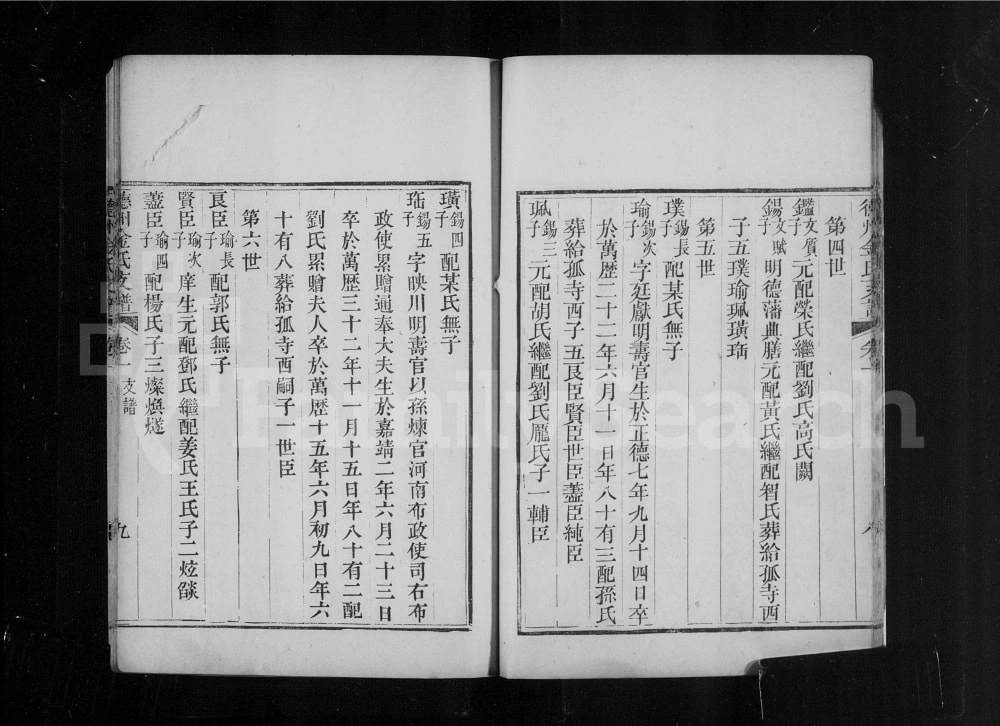 第四世
鑑文質子元配榮氏繼配劉氏高氏闕
錫文賦子明德藩典膳元配黃氏繼配智氏葬給孤寺西
子五璞瑜珮璜珤
第五世
璞錫長子配某氏無子
瑜錫次子字廷獻明壽官生於正德七年九月十四日卒
於萬歷二十二年六月十一日年八十有三配孫氏
葬給孤寺西子五良臣賢臣世臣藎臣純臣
珮錫三子元配胡氏繼配劉氏龐氏子一輔臣
璜錫四子配某氏無子
珤錫五子字映川明壽官以孫煉官河南布政使司右布
政使累贈通奉大夫生於嘉靖二年六月二十三日
卒於萬歷三十二年十一月十五日年八十有二配
劉氏累贈夫人卒於萬歷十五年六月初九日年六
十有八葬給孤寺西嗣子一世臣
第六世
良臣瑜長子配郭氏無子
賢臣瑜次子庠生元配鄧氏繼配姜氏王氏子二炫燄
藎臣瑜四子配楊氏子三燦煥燧
德州金氏支譜 卷一 支譜 九
FamilySearch